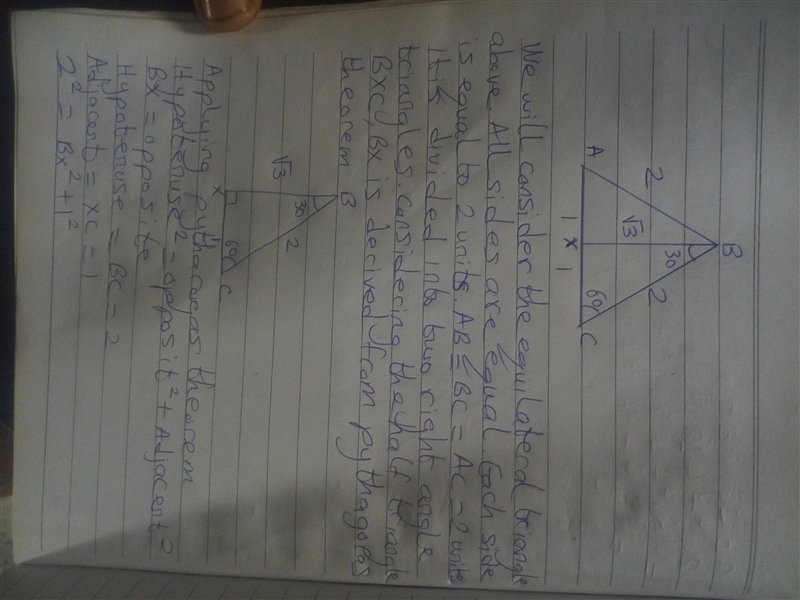 B
2
2
30
√3
60
A
1
X
1
C
We will consider the equilateral triangle
above. All sides are equal. Each side
is equal to 2 units. AB = BC = AC = 2 units
It is divided into two right angle
triangles. Considering the half triangle
BXC, BX is derived from pythagolas
theorem
B
30
√3
2
60
X
C
Applying pythagogas theorem
Hypotenuse² = opposit² + Adjacent²
BX = opposite
Hypotenuse = BC = 2
Adjacent = XC = 1
2² = Bx² + 1²